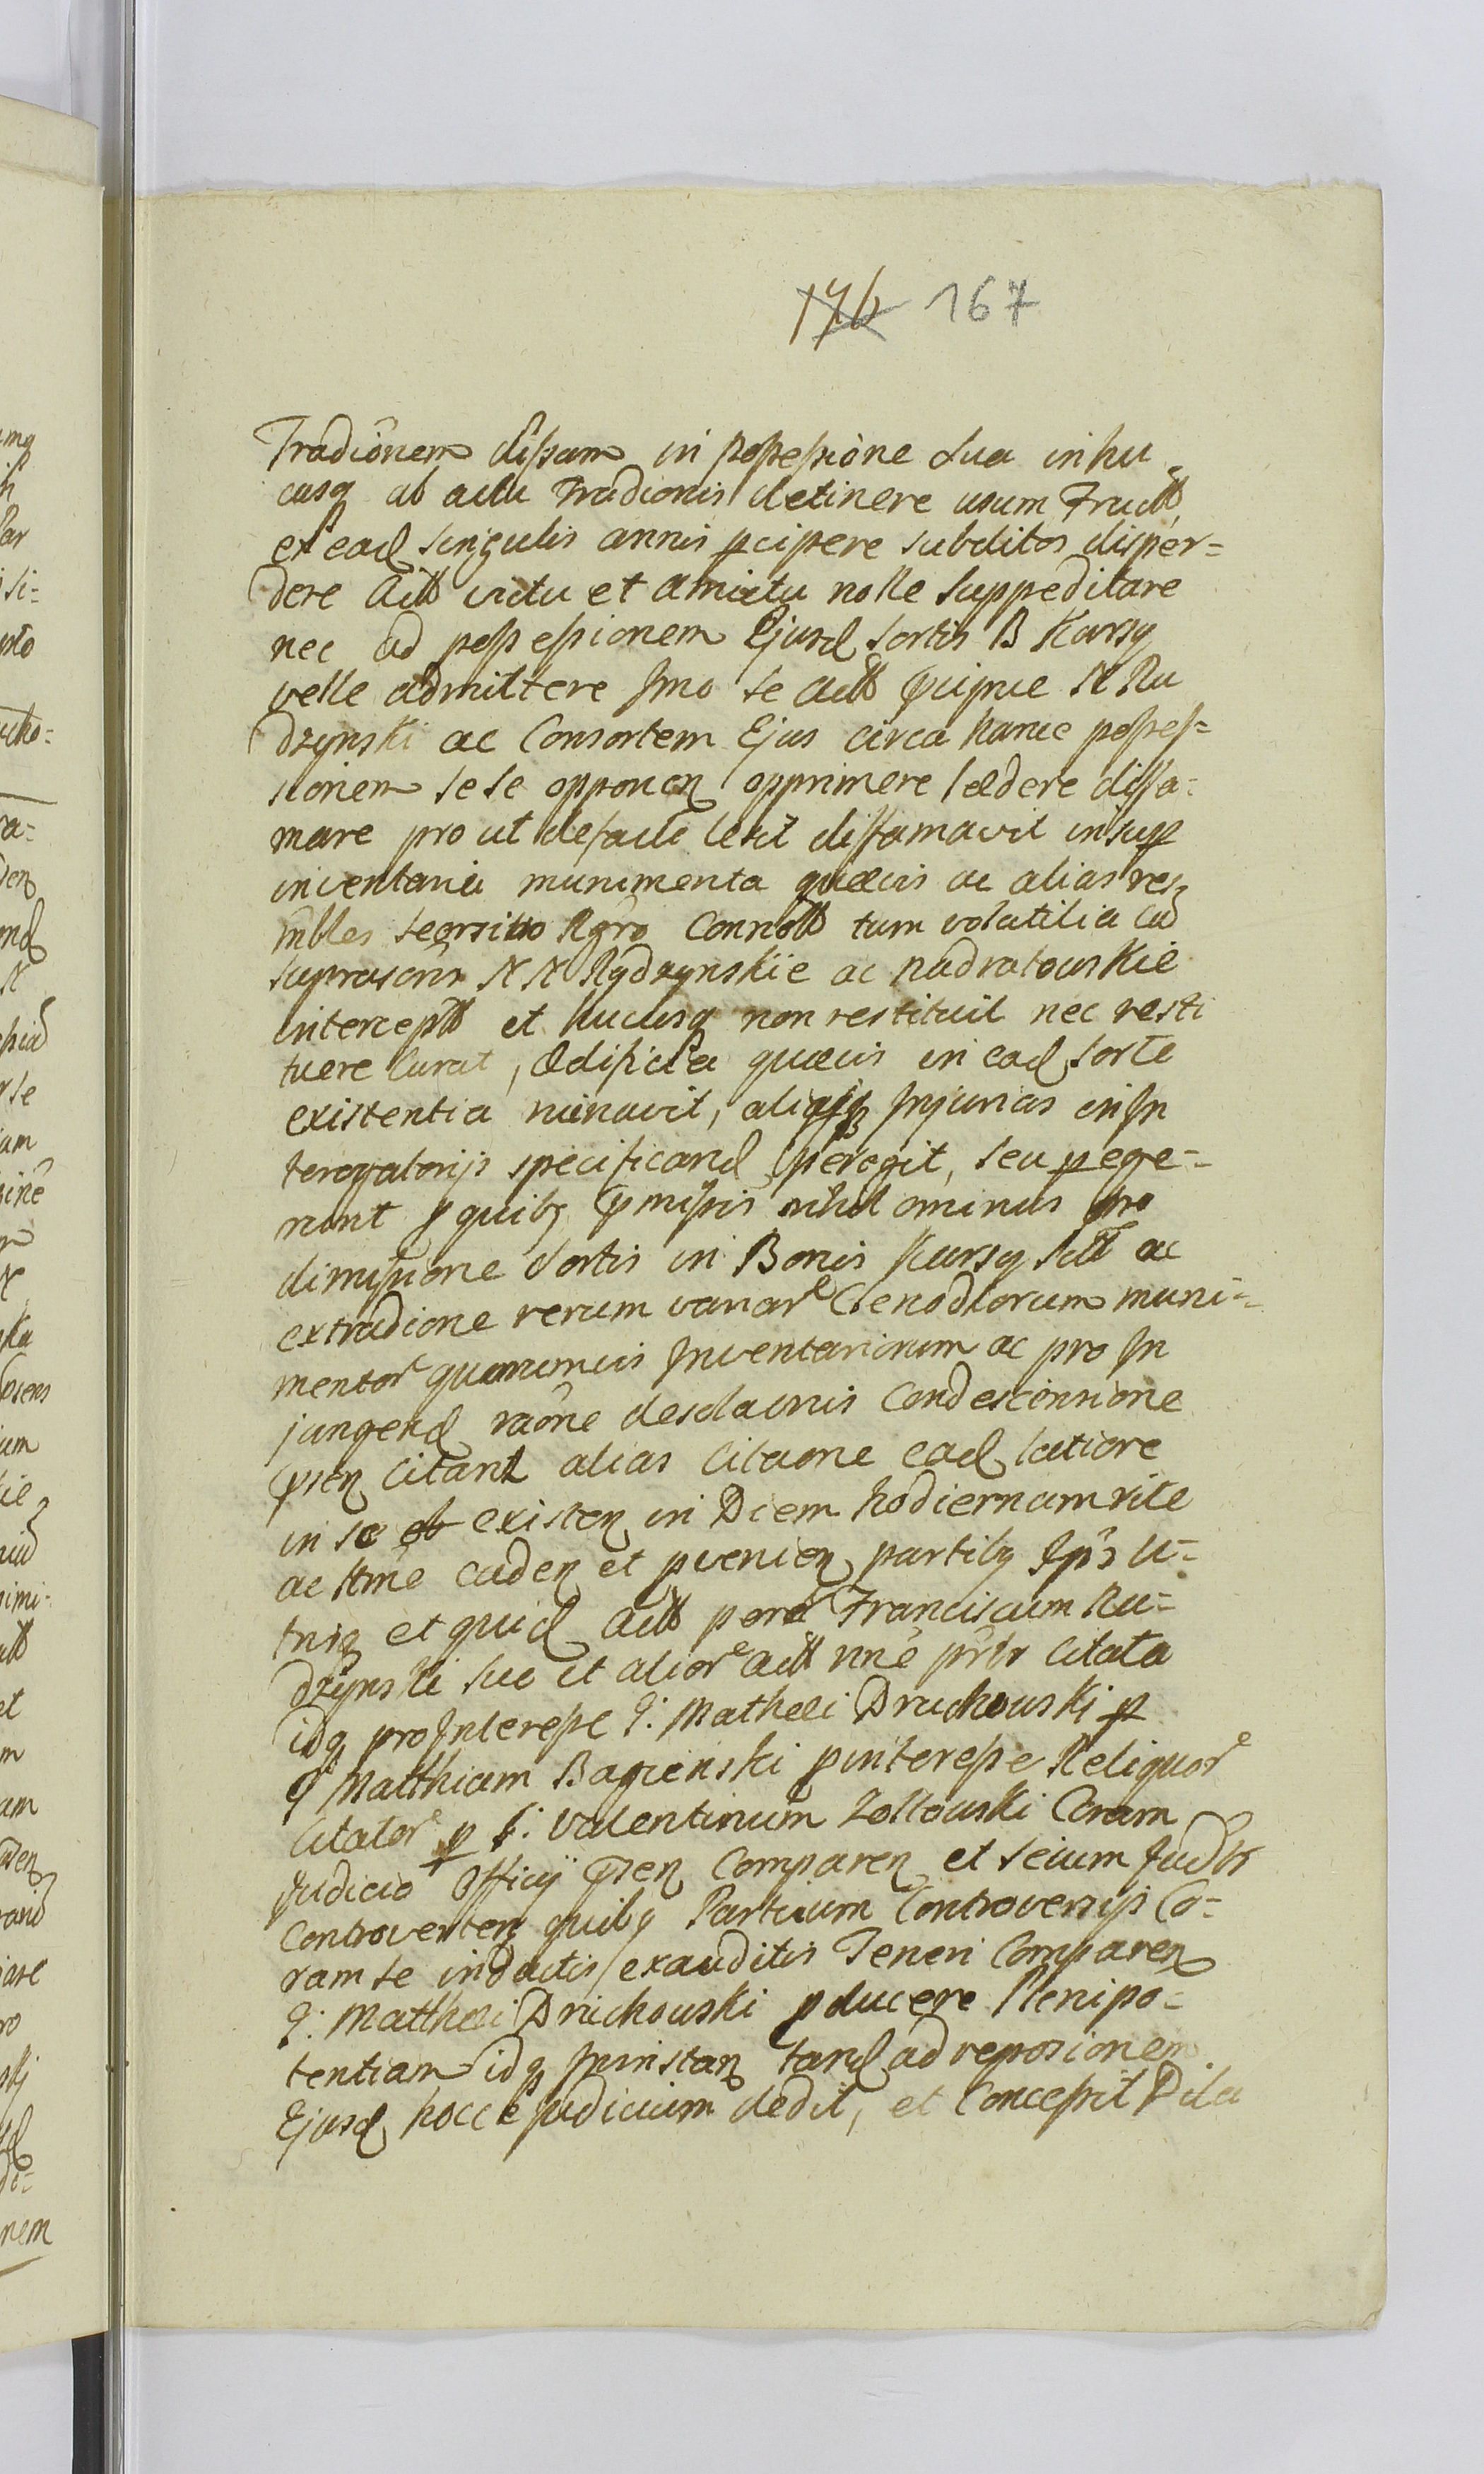 176 167
Tradionem dissam in possessione sua in hu
cusq ab actu Tradionis detinere usum Fruct
ex ead singulis annis pcipere subditos disper=
dere Act victu et amictu nolle suppeditare
nec ad possessionem Ejusd Sortis B Kursy
velle admittere Imo se act pcipue N Ru
dzynski ac Consortem Ejus circa hanc posses=
sionem se se opponen opprimere lædere diffa=
mare pro ut de facto lesit diffamavit insup
inventaria munimenta quævis ac alias res
mbles Regro Connott tum volatilia
N N Rydzynskie ac nadratowskie
intercept et hucusq non restituit nec resti
tuere Curat, Ædificia quævis in ead sorte
existentia ruinavit, Injurias in In
terogatorijs specificand peregit, seu pege=
runt p quibq pmissis nihil ominus pro
dimissione Sortis in Bonis Kursy ac
extradione rerum variar Clenodiorum muni=
mentor quorumvis Inventariorum ac pro In
jungend raone Condescensione
psen Citant alias Citaone ead latiore
in se existen in Diem hodiernam rite
ac ttme caden et pvenien partibq Ipis u=
trisq et quid act per Franciscum Ru=
dzynski suo et alior act nne citata
idq pro Interesse G: Mathei Druchowski p
G Matthiam Bagienski p interesse Reliquor
Citator p G: Valentinum Zoltowski Coram
Judicio Officij psen Comparen et secum Judtr
Controverten quibq Partium Controversijs Co=
ram se inductis exauditis Teneri Comparen
G: Matthei Druchowski pducere Plenipo=
tentiam idq tand ad reposionem
Ejusd hocce Judicium dedit, et Concessit Dila